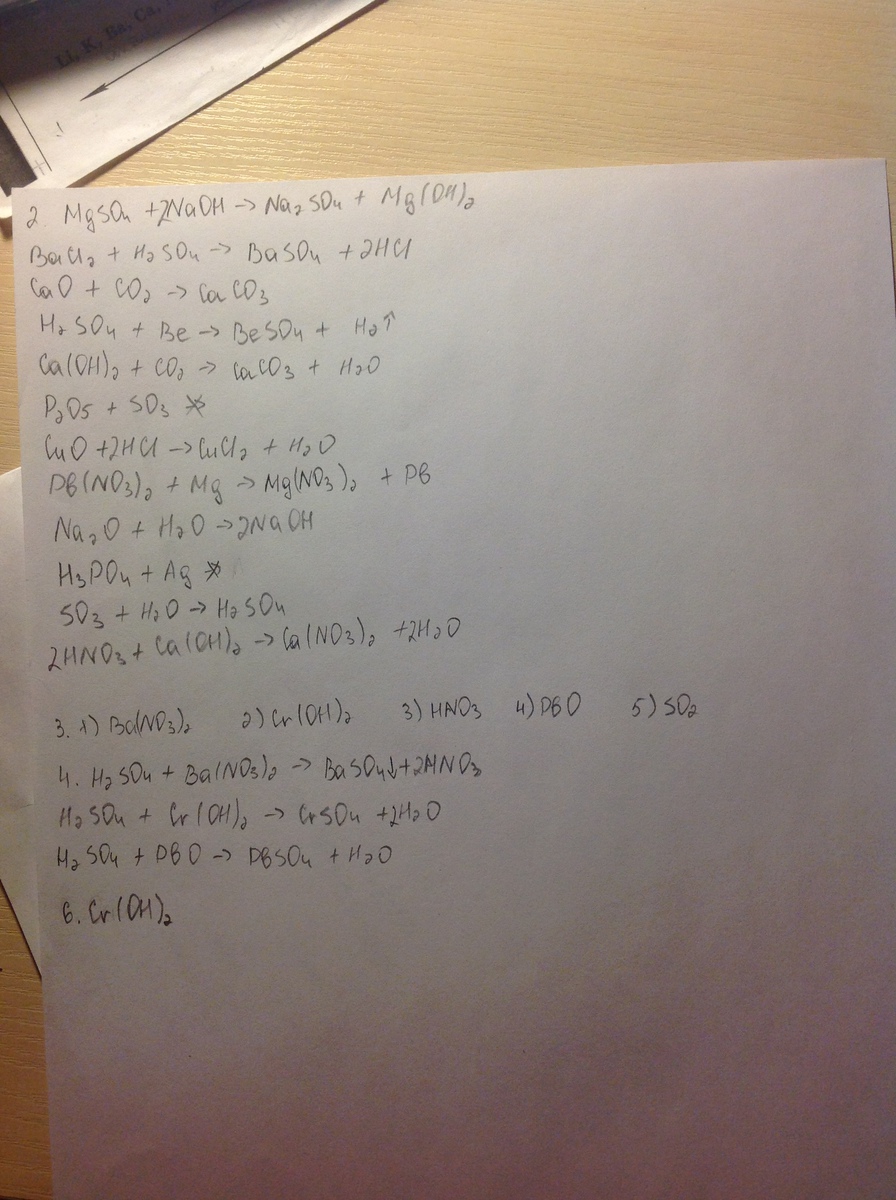 Li, K, Ba, Ca,
2. MgSO₄ +2NaOH → Na₂SO₄ + Mg(OH)₂
BaCl₂ + H₂SO₄ → BaSO₄ + 2HCl
CaO + CO₂ → CaCO₃
H₂SO₄ + Be → BeSO₄ + H₂↑
Ca(OH)₂ + CO₂ → CaCO₃ + H₂O
P₂O₅ + SO₃ ↛
CuO +2HCl → CuCl₂ + H₂O
Pb(NO₃)₂ + Mg → Mg(NO₃)₂ + Pb
Na₂O + H₂O → 2NaOH
H₃PO₄ + Ag ↛
SO₃ + H₂O → H₂SO₄
2HNO₃ + Ca(OH)₂ → Ca(NO₃)₂ +2H₂O
3. 1) Ba(NO₃)₂ 2) Cr(OH)₂ 3) HNO₃ 4) PbO 5) SO₂
4. H₂SO₄ + Ba(NO₃)₂ → BaSO₄↓+2HNO₃
H₂SO₄ + Cr(OH)₂ → CrSO₄ +2H₂O
H₂SO₄ + PbO → PbSO₄ + H₂O
6. Cr(OH)₂